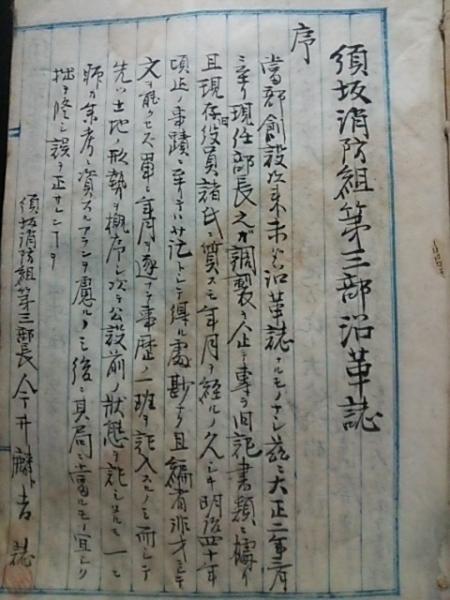 須坂消防組第三部沿革誌
序
當部創設以来未タ沿革誌ナルモノナシ茲ニ大正二年一月
ニ至リ現任部長之カ調製ヲ企テ専ラ旧記書類ニ據リ
且現存旧役員諸氏ニ質スモ年月ヲ経ルノ久シキ明治四十年
頃迄ノ事蹟ニ至リテハ茫トシテ得ル處尠ナク且編者非才ニシテ
文ヲ能クセス単ニ年月ヲ逐フテ事歴ノ一班ヲ記入スルノミ而シテ
先ツ土地ノ形勢ヲ概序シ次テ公設前ノ状態ヲ記シタルモ一ニ
ノ参考ニ資スルアランヲ慮ルノミ後ニ其局ニ當ルモノ宜シク
拙ヲ修シ誤ヲ正サレンコトヲ
須坂消防組第三部長今井麟吉誌